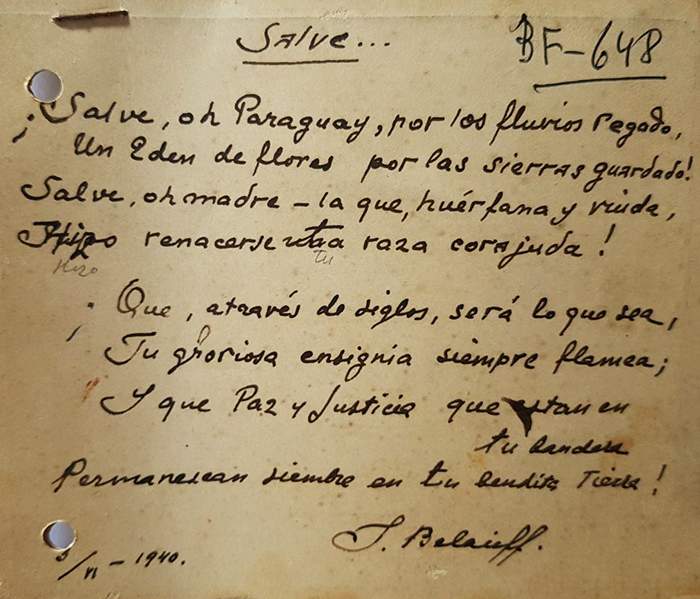 Salve...
BF-648
¡Salve, oh Paraguay, por los fluvios regado,
Un Eden de flores por las sierras guardado!
Salve, oh madre – la que, huérfana y viuda,
Hizo renacerse tu raza corajuda!
Hizo tu
¡Que, através de siglos, será lo que sea,
Tu gloriosa ensignia siempre flamea;
Y que Paz y Justicia que estan en
tu bandera
Permanescan siembre en tu bendita Tierra!
J. Belaieff.
/VI – 1940.